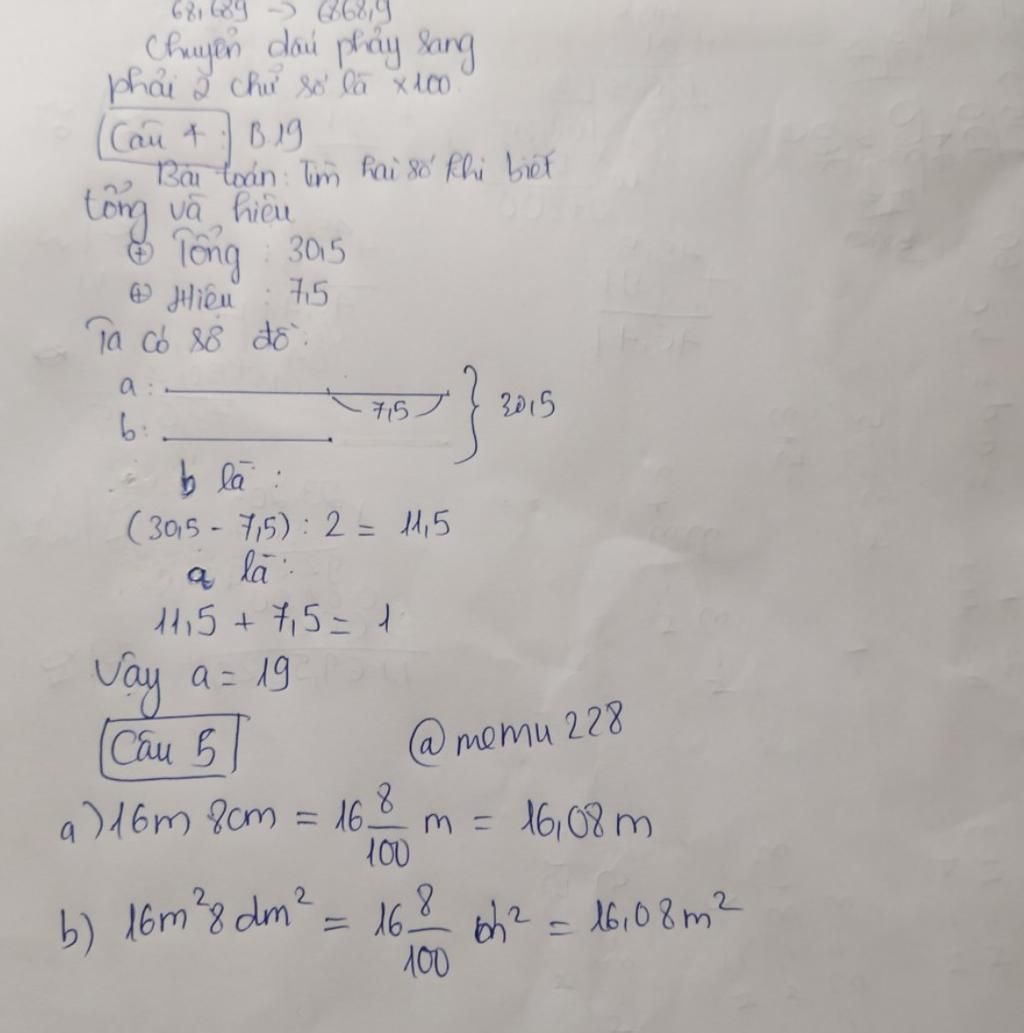 68,689 → 6868,9
Chuyển dấu phảy sang
phải 2 chữ số là ×100.
Câu 4: B.19
Bài toán: Tìm hai số khi biết
tổng và hiệu
⊕ Tổng : 30,5
⊕ Hiệu : 7,5
Ta có sơ đồ:
a: 7,5 } 30,5
b:
b là :
(30,5 - 7,5) : 2 = 11,5
a là :
11,5 + 7,5 = 1
Vậy a = 19
Câu 5 @memu228
a) 16m 8cm = 16 8/100 m = 16,08 m
b) 16m² 8 dm² = 16 8/100 m² = 16,08 m²